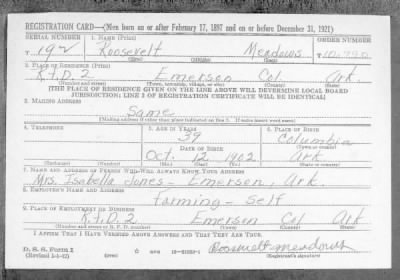 REGISTRATION CARD—(Men born on or after February 17, 1897 and on or before December 31, 1921)
SERIAL NUMBER 1. NAME (Print) ORDER NUMBER
T 192 Roosevelt Meadows 10,790
(First) (Middle) (Last)
2. PLACE OF RESIDENCE (Print)
R.F.D. 2 Emerson Col. Ark.
(Number and street) (Town, township, village, or city) (County) (State)
[THE PLACE OF RESIDENCE GIVEN ON THE LINE ABOVE WILL DETERMINE LOCAL BOARD
JURISDICTION; LINE 2 OF REGISTRATION CERTIFICATE WILL BE IDENTICAL]
3. MAILING ADDRESS
Same
[Mailing address if other than place indicated on line 2. If same insert word same]
4. TELEPHONE 5. AGE IN YEARS 6. PLACE OF BIRTH
39 Columbia
DATE OF BIRTH (Town or county)
Oct. 12 1902 Ark
(Exchange) (Number) (Mo.) (Day) (Yr.) (State or country)
7. NAME AND ADDRESS OF PERSON WHO WILL ALWAYS KNOW YOUR ADDRESS
Mrs. Isabella Jones - Emerson, Ark.
8. EMPLOYER'S NAME AND ADDRESS
farming - Self
9. PLACE OF EMPLOYMENT OR BUSINESS
R.F.D. 2 Emerson Col Ark
(Number and street or R. F. D. number) (Town) (County) (State)
I AFFIRM THAT I HAVE VERIFIED ABOVE ANSWERS AND THAT THEY ARE TRUE.
D. S. S. Form 1
(Revised 1-1-42) (over) GPO Roosevelt meadows